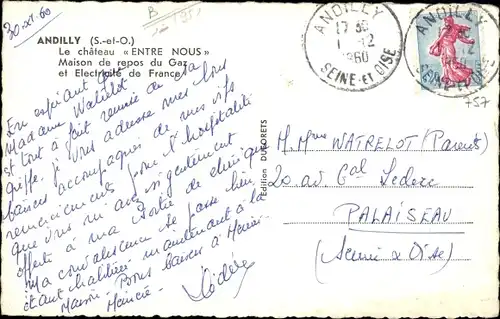 30-XI-60
B
1951
ANDILLY (S.-et-O.)
Le château « ENTRE NOUS »
Maison de repos du Gaz
et Electricité de France
En espérant que
Madame Watrelot
est tout à fait remise de sa
griffe je vous adresse mes bons
baisers accompagnés de mes vifs
remerciements pour l'hospitalité
que vous m'avez si gentiment
offerte à ma sortie de clinique
Ma convalescence se passe bien
étant habituée maintenant à la
Maison. Bons baisers à
Edition DUBORETS
ANDILLY
17 30
1 12
1960
SEINE-et-OISE
ANDILLY
SEINE-et-OISE
757
M. Mme WATRELOT (Parents)
20 av. Gal Leclerc
PALAISEAU
(Seine & Oise)